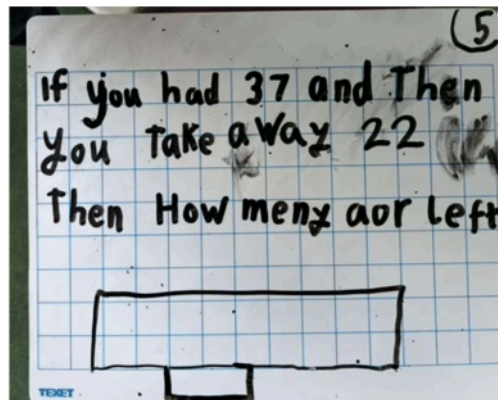 5
If you had 37 and Then
you Take away 22
Then How meny aor left
TEXET